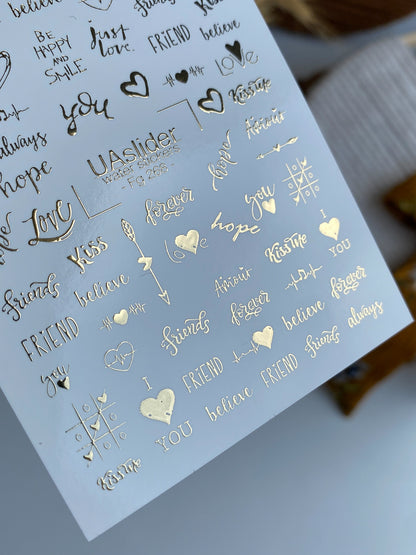 believe
friends
Kiss
BE
HAPPY
AND
SMILE
just
love.
FRIEND
believe
Love
you
Kiss Me
always
UAslider
Water Stickers
- Fg 298 -
hope
Amour
hope
forever
you
Love
Kiss
love
hope
I
YOU
friends
believe
Amour
Kiss Me
FRIEND
forever
forever
friends
believe
you
friends
always
I
YOU
FRIEND
believe
FRIEND
Kiss Me